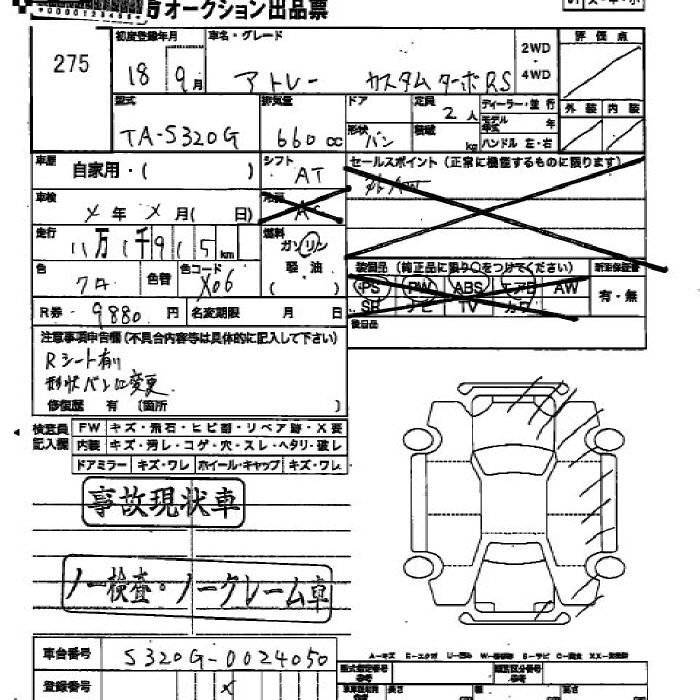 オークション出品票
275
初度登録年月 車名・グレード
18 9月 アトレー カスタムターボRS
2WD
・
4WD
評価点
外装 内装
型式 排気量 ドア 定員 ディーラー・並行
TA-S320G 660cc 2人
モデル年式 年
形状 バン 積載 kg ハンドル 左・右
車歴 自家用・( )
シフト AT
セールスポイント (正常に機能するものに限ります)
車検 メ年 メ月( 日)
冷房 AC
走行 11万1千915km
燃料 ガソリン
軽油
( )
色 クロ 色替 色コード X06
装備品 (純正品に限り○をつけてください) 新車保証書
PS PW ABS エアB AW 有・無
SR ナビ TV カワ
後日品
R券 9880円 名変期限 月 日
注意事項申告欄(不具合内容等は具体的に記入して下さい)
Rシート有り
形状バンに変更
修復歴 有 (箇所 )
検査員記入欄
FW キズ・飛石・ヒビ割・リペア跡・X要
内装 キズ・汚レ・コゲ・穴・スレ・ヘタリ・破レ
ドアミラー キズ・ワレ ホイール・キャップ キズ・ワレ
事故現状車
ノー検査・ノークレーム車
車台番号 S320G-0024050
登録番号 メ
A-キズ E-エクボ U-凹み
型式指定番号 類別区分番号
長さ 幅 高さ